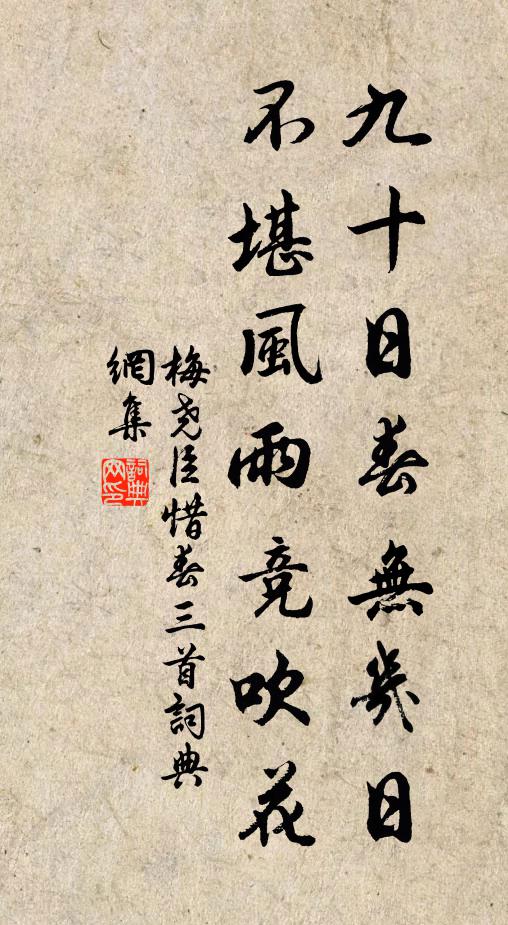 九十日春無幾日
不堪風雨竞吹花
梅堯臣惜春三首詞典
網集
詞典
网印